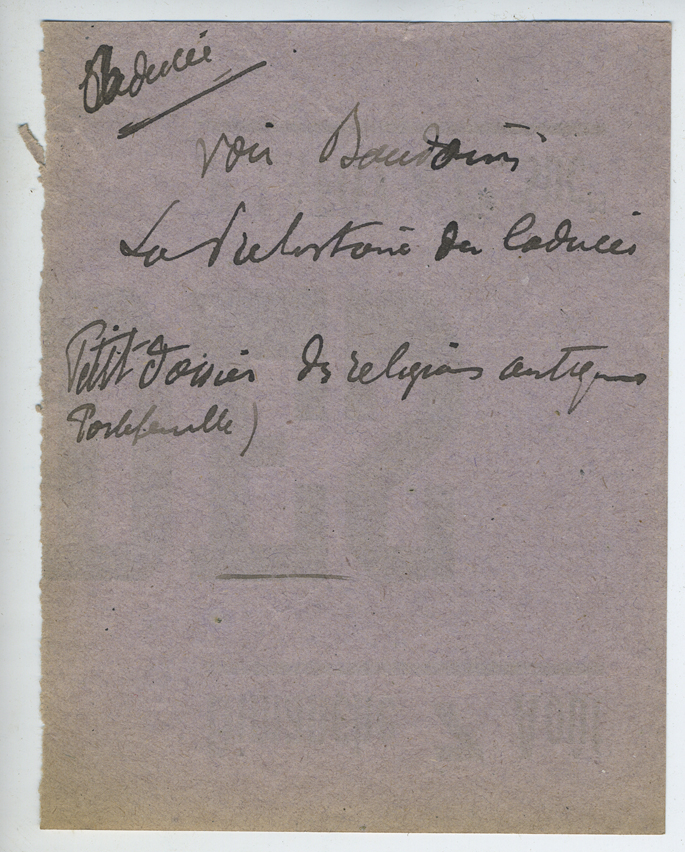 Caducée
Voir Baudouin
La Préhistoire du Caducée
Petit Dossier des religions antiques
Portefeuille)